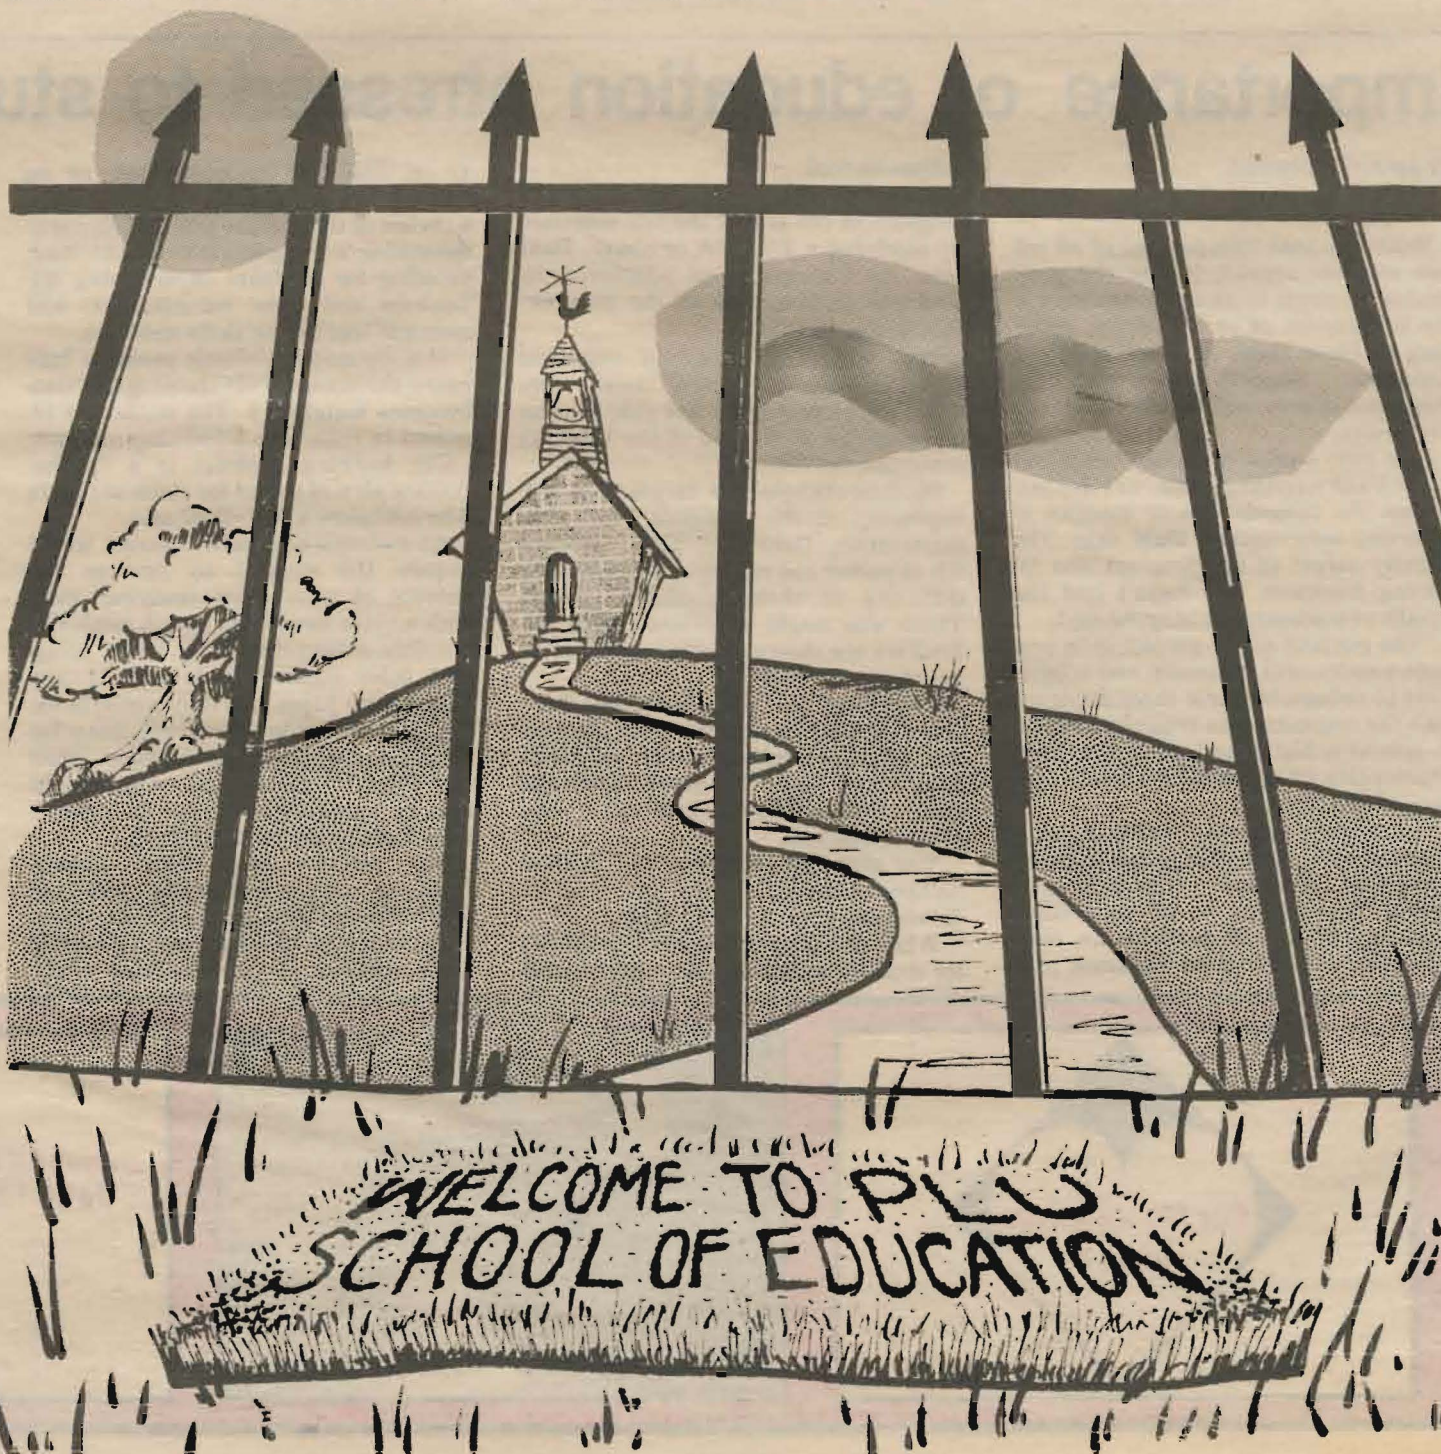 WELCOME TO PLU
SCHOOL OF EDUCATION